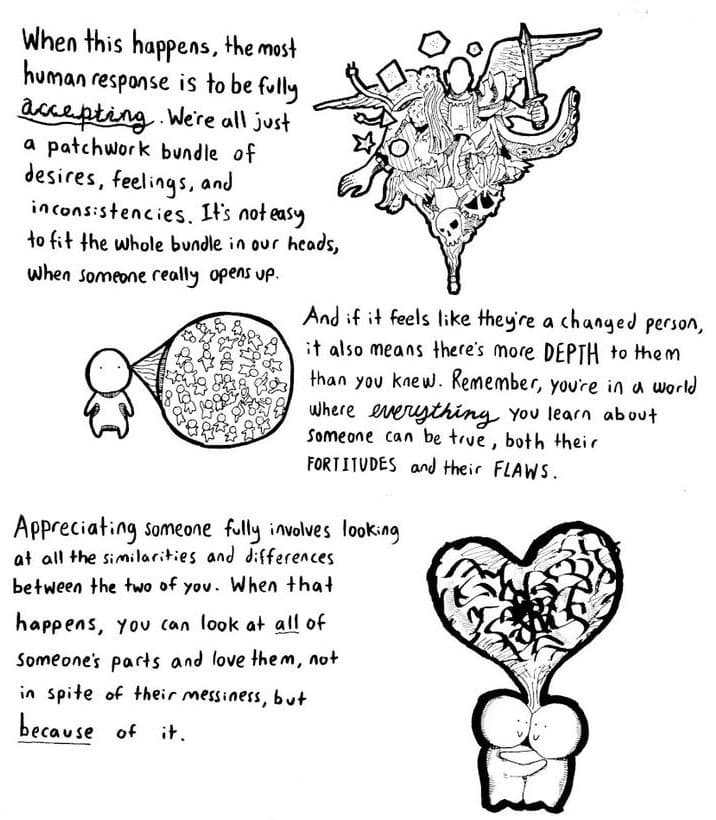 When this happens, the most
human response is to be fully
accepting. We're all just
a patchwork bundle of
desires, feelings, and
inconsistencies. It's not easy
to fit the whole bundle in our heads,
when someone really opens up.
And if it feels like they're a changed person,
it also means there's more DEPTH to them
than you knew. Remember, you're in a world
where everything you learn about
someone can be true, both their
FORTITUDES and their FLAWS.
Appreciating someone fully involves looking
at all the similarities and differences
between the two of you. When that
happens, you can look at all of
someone's parts and love them, not
in spite of their messiness, but
because of it.